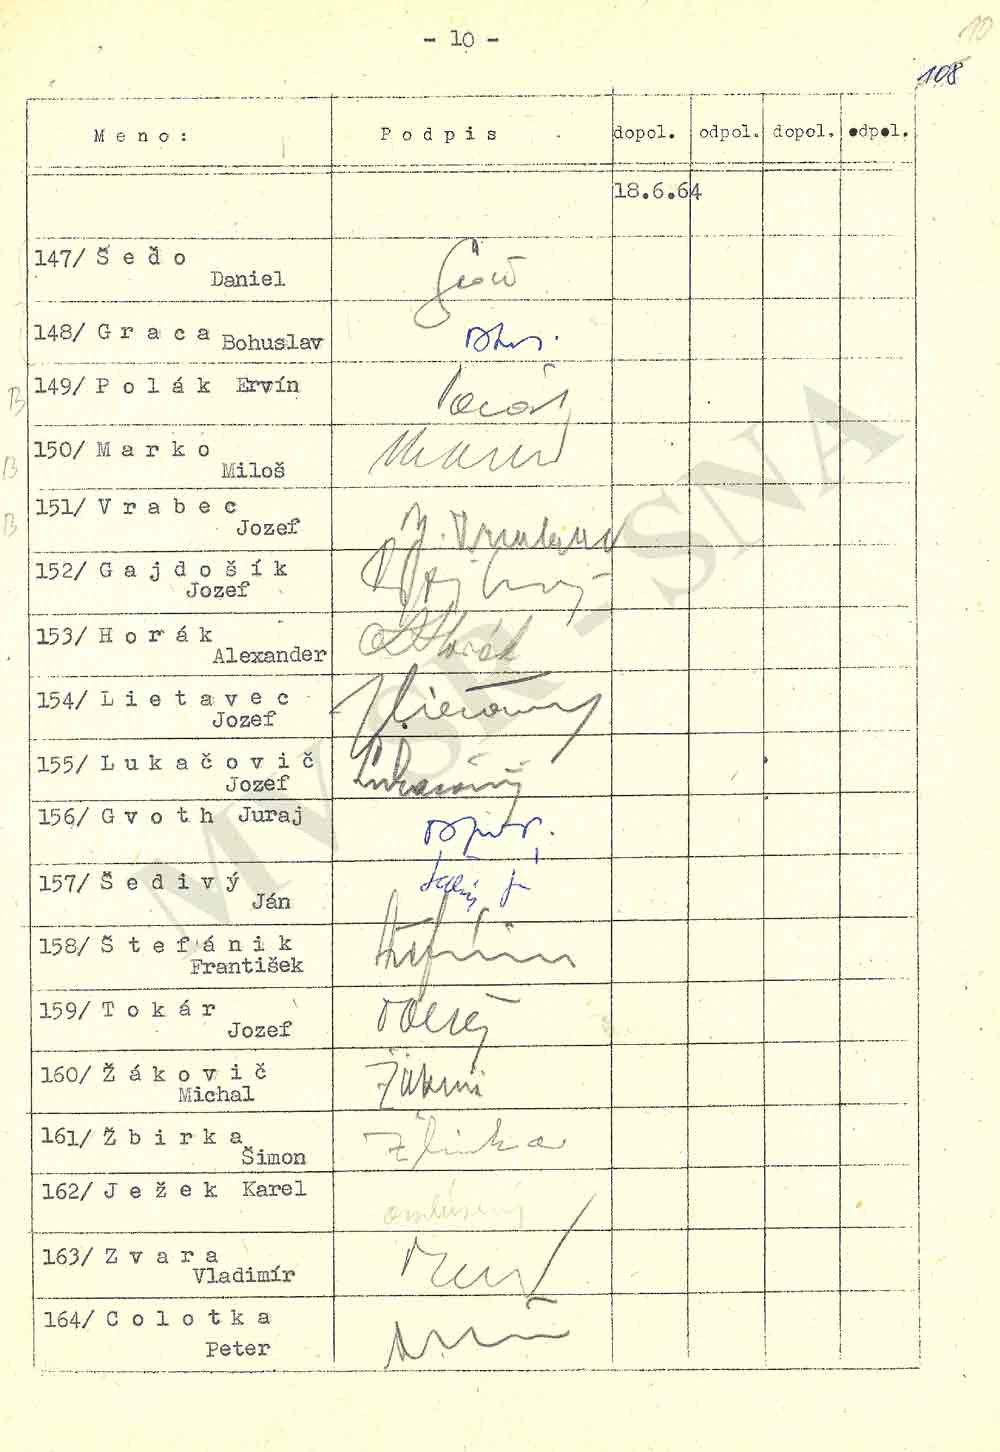 10
- 10 -
108
Meno: Podpis dopol. odpol. dopol. odpol.
18.6.64
147/ Šedo
Daniel
148/ Graca Bohuslav
149/ Polák Ervín
B
150/ Marko
B Miloš
151/ Vrabec
B Jozef
152/ Gajdošík
Jozef
153/ Horák
Alexander
154/ Lietavec
Jozef
155/ Lukačovič
Jozef
156/ Gvoth Juraj
157/ Šedivý
Ján
158/ Štefánik
František
159/ Tokár
Jozef
160/ Žákovič
Michal
161/ Žbirka
Šimon
162/ Ježek Karel
163/ Zvara
Vladimír
164/ Colotka
Peter
MVSR - SNA